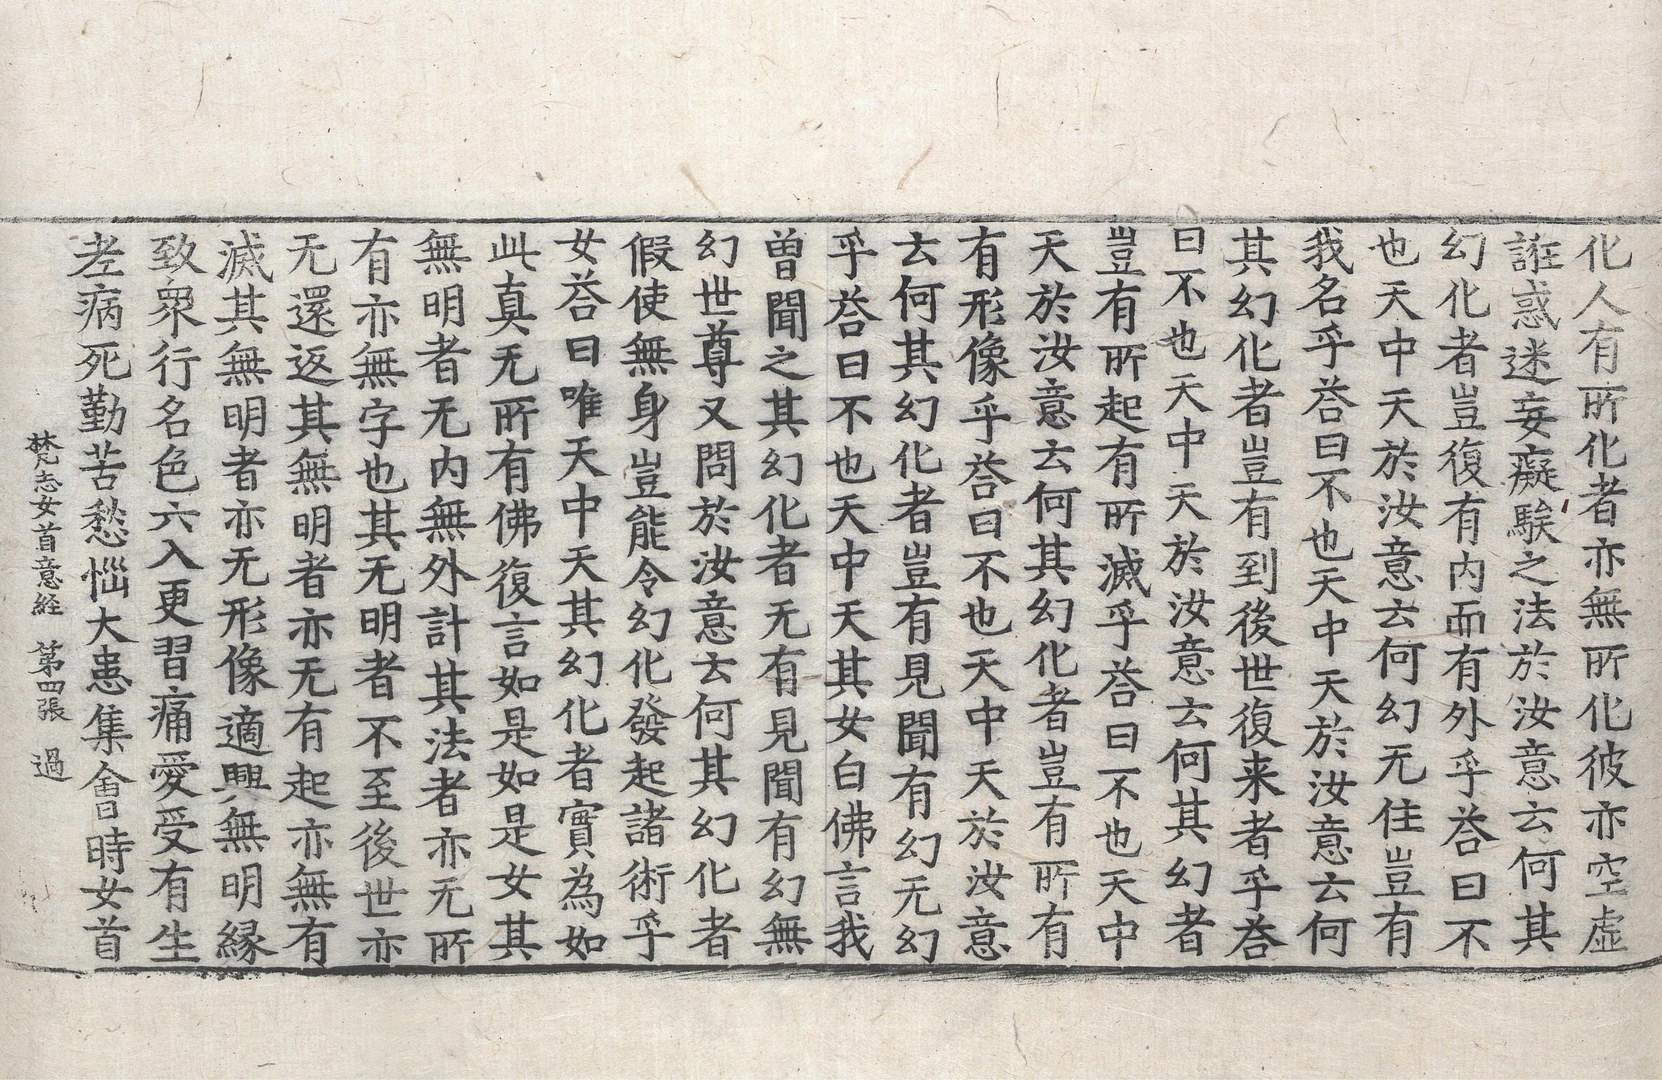 化人有所化者亦無所化彼亦空虛
誑惑迷妄癡騃之法於汝意云何其
幻化者豈復有内而有外乎荅曰不
也天中天於汝意云何幻无住豈有
我名乎荅曰不也天中天於汝意云何
其幻化者豈有到後世復来者乎荅
曰不也天中天於汝意云何其幻者
豈有所起有所滅乎荅曰不也天中
天於汝意云何其幻化者豈有所有
有形像乎荅曰不也天中天於汝意
云何其幻化者豈有見聞有幻无幻
乎荅曰不也天中天其女白佛言我
曽聞之其幻化者无有見聞有幻無
幻世尊又問於汝意云何其幻化者
假使無身豈能令幻化發起諸術乎
女荅曰唯天中天其幻化者實為如
此真无所有佛復言如是如是女其
無明者无内無外計其法者亦无所
有亦無字也其无明者不至後世亦
无還返其無明者亦无有起亦無有
滅其無明者亦无形像適興無明緣
致衆行名色六入更習痛愛受有生
老病死勤苦愁惱大患集會時女首
梵志女首意経　第四張　過